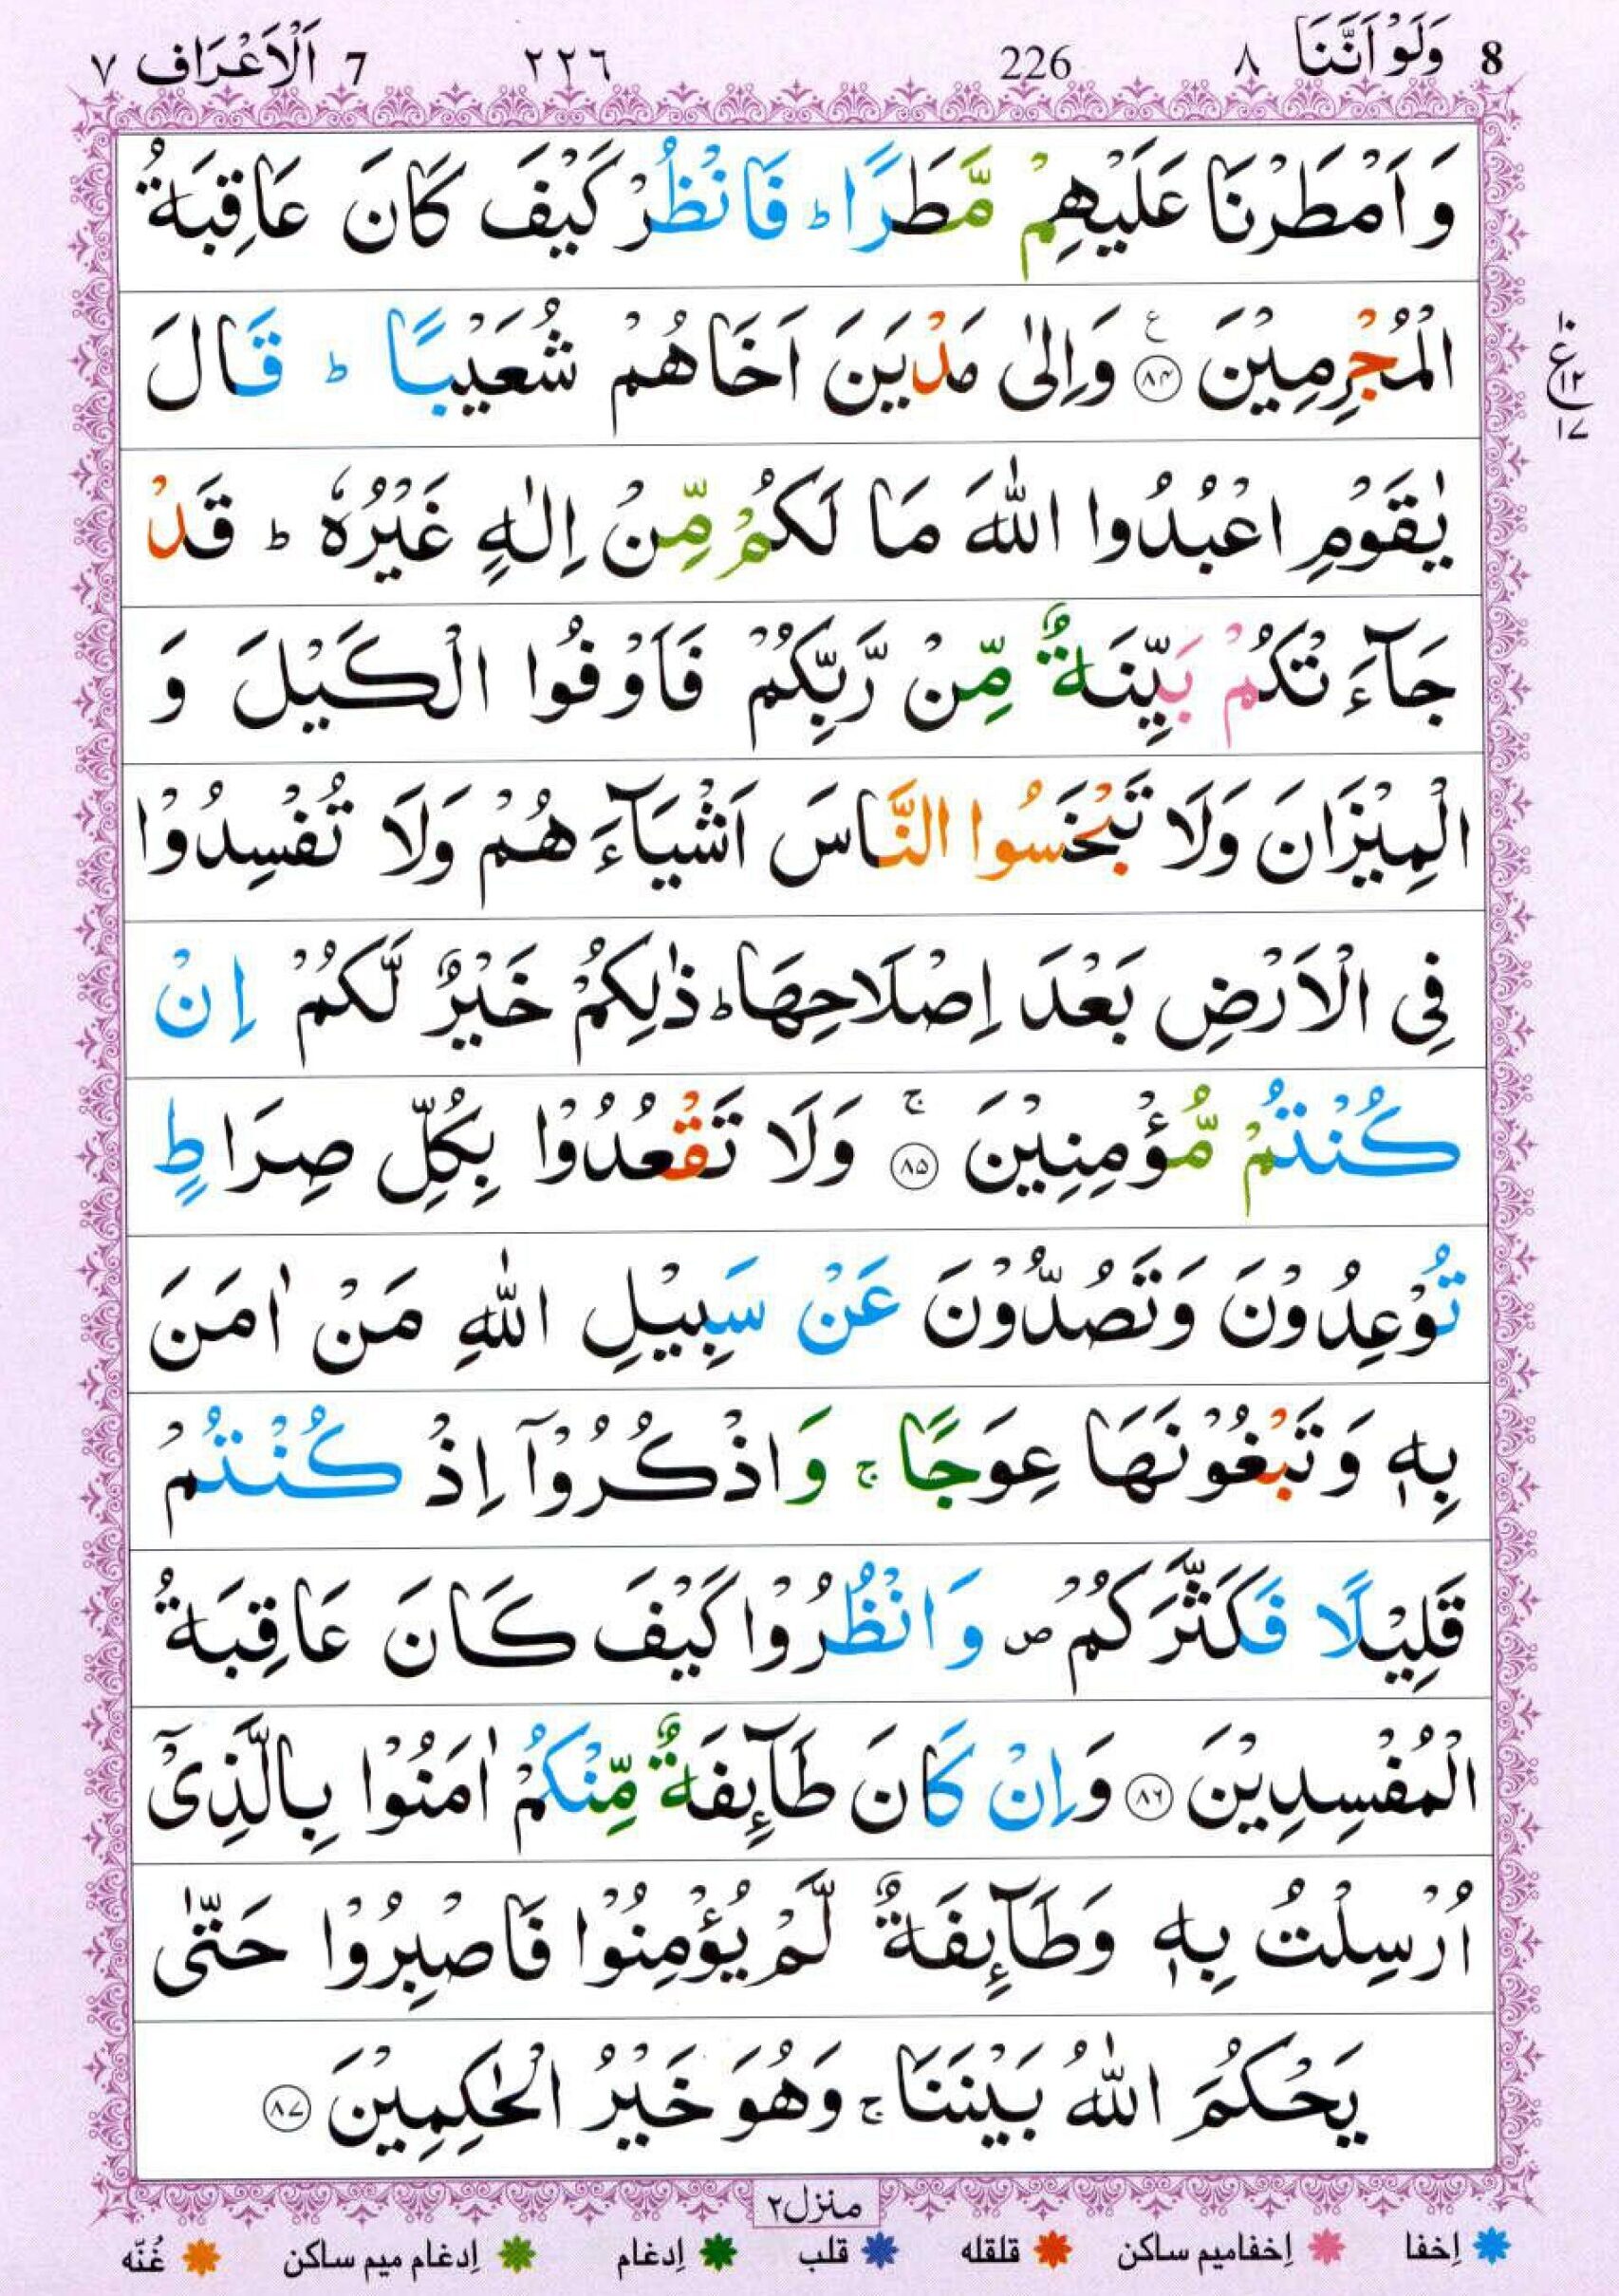 8 وَلَوْ اَنَّنَا ٨ 226 ٢٢٦ 7 اَلْاَعْرَاف ٧
وَ اَمْطَرْنَا عَلَيْهِمْ مَّطَرًا ؕ فَانْظُرْ كَيْفَ كَانَ عَاقِبَةُ
الْمُجْرِمِيْنَ ۟ع ۝۸۴ وَاِلٰى مَدْيَنَ اَخَاهُمْ شُعَيْبًا ؕ قَالَ
يٰقَوْمِ اعْبُدُوا اللّٰهَ مَا لَكُمْ مِّنْ اِلٰهٍ غَيْرُهٗ ؕ قَدْ
جَآءَتْكُمْ بَيِّنَةٌ مِّنْ رَّبِّكُمْ فَاَوْفُوا الْكَيْلَ وَ
الْمِيْزَانَ وَلَا تَبْخَسُوا النَّاسَ اَشْيَآءَهُمْ وَلَا تُفْسِدُوْا
فِى الْاَرْضِ بَعْدَ اِصْلَاحِهَا ؕ ذٰلِكُمْ خَيْرٌ لَّكُمْ اِنْ
كُنْتُمْ مُّؤْمِنِيْنَ ۚ ۝۸۵ وَلَا تَقْعُدُوْا بِكُلِّ صِرَاطٍ
تُوْعِدُوْنَ وَتَصُدُّوْنَ عَنْ سَبِيْلِ اللّٰهِ مَنْ اٰمَنَ
بِهٖ وَتَبْغُوْنَهَا عِوَجًا ۚ وَاذْكُرُوْٓا اِذْ كُنْتُمْ
قَلِيْلًا فَكَثَّرَكُمْ ۪ وَانْظُرُوْا كَيْفَ كَانَ عَاقِبَةُ
الْمُفْسِدِيْنَ ۝۸۶ وَاِنْ كَانَ طَآئِفَةٌ مِّنْكُمْ اٰمَنُوْا بِالَّذِىْٓ
اُرْسِلْتُ بِهٖ وَطَآئِفَةٌ لَّمْ يُؤْمِنُوْا فَاصْبِرُوْا حَتّٰى
يَحْكُمَ اللّٰهُ بَيْنَنَا ۚ وَهُوَ خَيْرُ الْحٰكِمِيْنَ ۝۸۷
۱۰
ع ۱۲
۱۷
منزل۲
اِخفا اِخفامیم ساکن قلقله قلب اِدغام اِدغام میم ساکن غُنّه